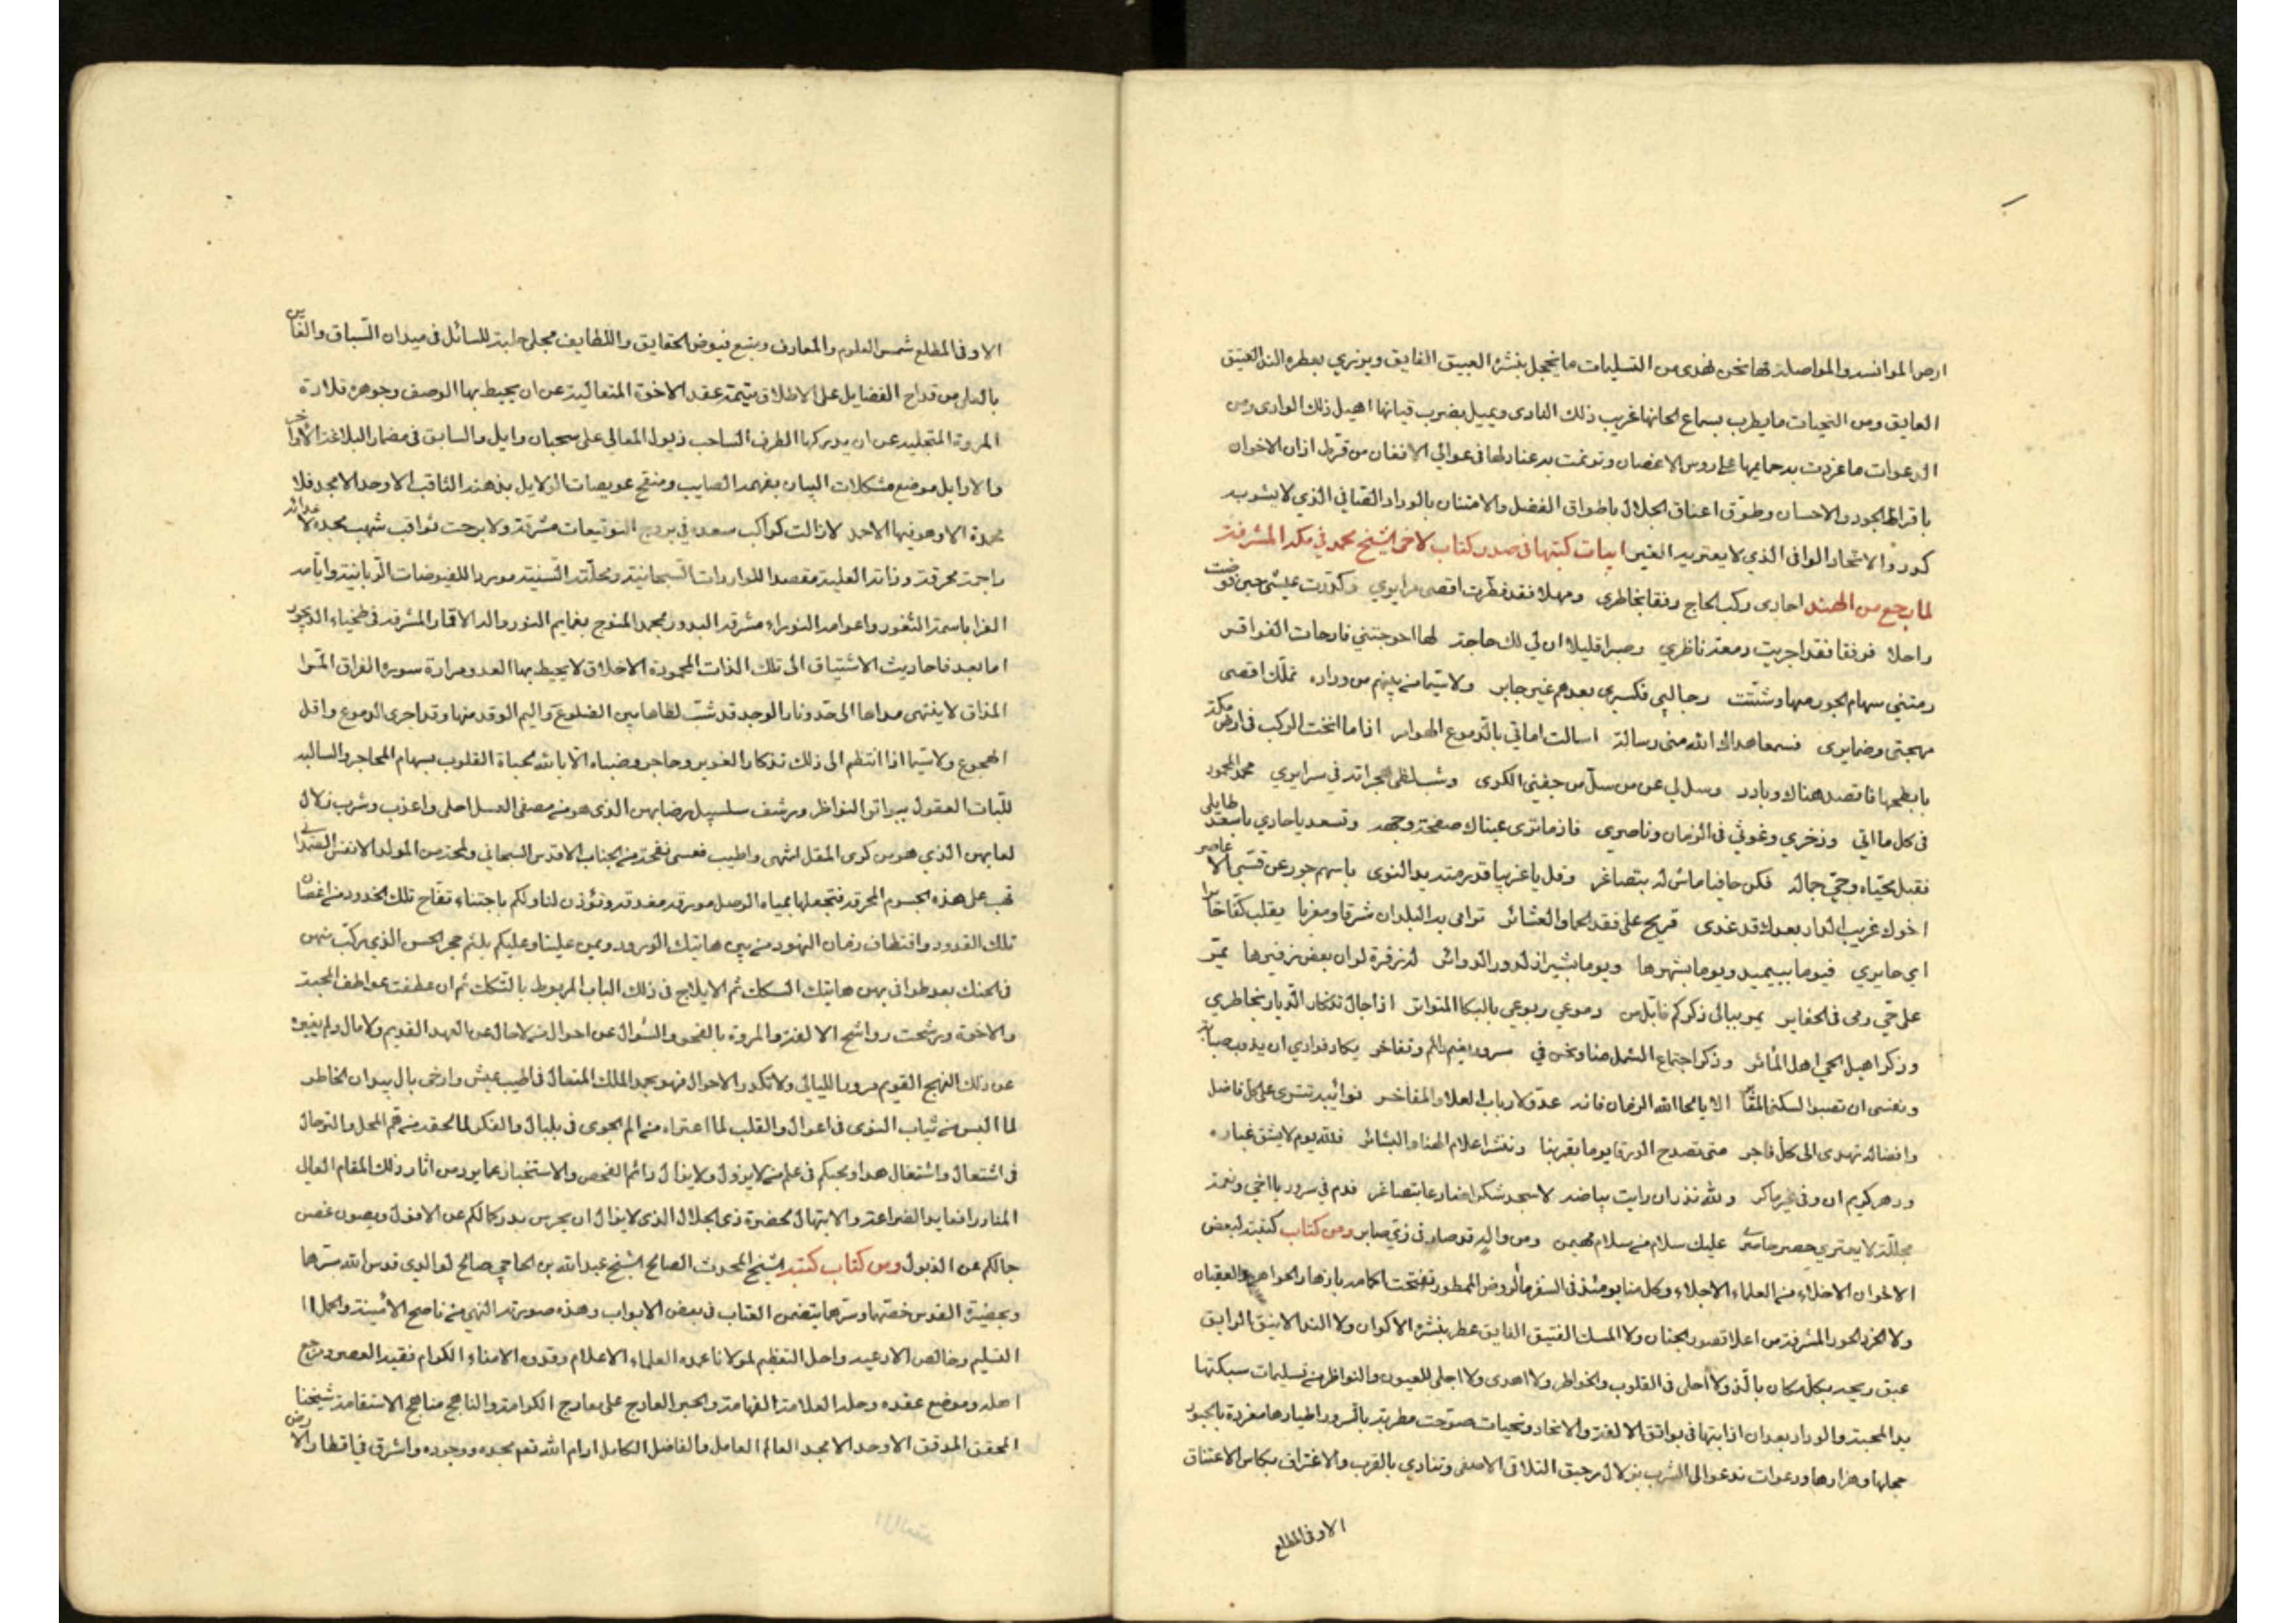 ارض الموانسة والمواصلة فها نحن نهدي من التسليمات ما يخجل بنشره العبيق الفايق ويزري بعطره الند العبيق
العابق ومن التحيات ما يطرب بسماع الحانها غريب ذلك النادي ويميل بضروب قيانها اهيل ذلك الوادي ومن
الدعوات ما غردت به حمايمها على روس الاغصان وترنمت به عنادلها في عوالي الافنان من قرط اذان الاخوان
باقراط الجود والاحسان وطوق اعناق الجلال باطواق الفضل والامتنان بالوداد الصافي الذي لا يشوبه
كدورة والاتحاد الوافي الذي لا يعتريه الغير ابيات كتبتها في صدر كتاب لاخي الشيخ محمد في مكة المشرفة
لما رجع من الهند احادي ركب الحاج رفقا بخاطري ومهلا فقد فطرت اقصى مرايري وكدرت عيشي حين قوضت
راحلا فرفقا فقد اجريت دمعة ناظري وصبرا قليلا ان لي لك حاجة لها احوجتني فادحات الفواقر
رمتني سهام الجور منها وشتتت رجالي فكسري بعدهم غير جابر ولا سيما من بينهم من وداده تملك اقصى
مهجتي وضمايري فسمعا هداك الله مني رسالة اسالت اماقي بالدموع الهوامر اذا ما انخت الركب في ارض مكة
بابطحها فاقصد هناك وبادر وسل لي عن من سل من جفني الكرى وشب لظى هجرانه في سرايري محمد المحمود
في كل ما اتى وذخري وغوثي في الزمان وناصري فاذ ما ترى عيناك صفحة وجهه وتسعد يا حادي باسعد طايل
فقبل محياه وحي جماله فكن حافيا ماش له بتصاغر وقل يا غريبا قد رمته يد النوى باسهم جور عن قسي الا عاصر
اخوك غريب الدار بعدك قد غدى قريح على فقد الحما والعشائر ترامى به البلدان شرقا ومغربا يقلب كفا خاسرا
اي حايري فيوما ببيمبيد ويوما بشهرها ويوما بشيراز لدور الدوائر له زفرة لو ان بعض زفيرها يمر
على حي رمى في الحفاير يمر ببالي ذكركم فابل من دموعي ربوعي بالبكا المتواتر اذا جال تذكار الديار بخاطري
وذكر اهيل الحي اهل المآثر وذكر اجتماع الشمل منا ونحن في سرور نعيم دائم وتفاخر يكاد فوادي ان يذوب صبابة
ونفسي ان تصبو لسكنى المقابر الا يا لحا الله الزمان فانه عدو لارباب العلا والمفاخر نوائبه تترى على كل فاضل
وافضاله تهدى الى كل فاجر متى تصدح الورقا يوما بقربنا وننشر اعلام الهنا والبشائر فلله يوم لا يشق غباره
ودهر كريم ان وفى غير ماكر ولله نذر ان رايت بياضه لاسجد شكرا ضارعا بتصاغر فدم في سرور يا اخي ونعمة
مجللة لا يعتري حصر حاسر عليك سلام من سلام مهيمن ومن والد قد صار في زي صابر ومن كتاب كتبته لبعض
الاخوان الاخلاء من العلماء الاجلاء وكل منا يومئذ في السفر ما الروض الممطور تفتحت اكمامه بازهار الجواهر والعقيان
ولا الخرد الحور المشرفة من اعلا قصور الجنان ولا المسك الفتيق الفايق عطر بنشره الاكوان ولا الند الانيق الرايق
عبق ريحه بكل مكان بالذ ولا أحلى في القلوب والخواطر ولا اهدى ولا اجلى للعيون والنواظر من تسليمات سبكتها
يد المحبة والوداد بعد ان اذابتها في بواتق الالفة والاتحاد وتحيات صوتت مطربة بالسرور اطيارها مغردة بالحبور
مجلها وهزارها ودعوات تدعو الى الشرب بزلال رحيق التلاق الاصفى وتنادي بالقرب والاغتراف بكاس الاعتناق
الاوفى المطلع
الاوفى المطلع شمس العلوم والمعارف ومنبع فيوض الحقايق واللطايف مجلى حلبة المسائل في ميدان السباق والفايز
بالعلى من قداح الفضايل على الاطلاق يتيمة عقد الاخوة المتعالية عن ان يحيط بها الوصف وجوهرة قلادة
المروة المتجلية عن ان يدركها الطرف الساحب ذيول المعالي على سحبان وايل والسابق في مضمار البلاغة الاواخر
والاوايل موضع مشكلات البيان بفهمه الصايب ومنقح عويصات الدلايل بذهنه الثاقب الاوحد الامجد فلا
محمدة الا وهو فيها الاحد لا زالت كواكب سعده في بروج التوقيعات مشرقة ولا برحت ثواقب شهب مجده لاعدائه
راجمة محرقة وذاته العلية مقصدا للواردات السبحانية ومحلته السنية موردا للفيوضات الربانية وايامه
الغرا باسمة الثغور واعوامه النوراء مشرقة البدور محمد المتوج بغمايم النور والد الاقمار المشرقة في ظحياء الديجور
اما بعد فاحاديث الاشتياق الى تلك الذات المحمودة الاخلاق لا يحيط بها العد ومرارة سورة الفراق المرة
المذاق لا ينتهي مداها الى حد ونار الوجد قد شب لظاها بين الضلوع واليم الوقد منها وقد اجرى الدموع واقل
الهجوع ولا سيما اذا انتظم الى ذلك تذكار الغوير وحاجر وضباه الآبالة لحباة القلوب بسهام المحاجر والسالبة
للبات العقول ببواتر النواظر ورشف سلسبيل رضابهن الذي هو من مصفى العسل احلى واعذب وشرب زلال
لعابهن الذي هو من كرى المقل اشهى واطيب فعسى نفحة من الجناب الاقدس السبحاني ولمحة من المولد الانفس الصمداني
تهب على هذه الجسوم المحرقة فتجعلها بمياه الوصل مورقة مغدقة وتؤذن لنا ولكم باجتناء تفاح تلك الخدود من اغصان
تلك القدود واقتطاف رمان النهود من بين هاتيك الورود ويمن علينا وعليكم بلثم حجر الحسن الذي ركب منهن
في الحنك بعد طوافي بهن هاتيك السكك ثم الايلاج في ذلك الباب المربوط بالتكك ثم ان عطفت عواطف المحبة
والاخوة ورشحت رواشح الالفة والمروة بالفحو والسؤال عن احوال من لا حال عن العهد القديم ولا مال ولم يغيره
عن ذلك النهج القويم مرور الليالي ولا تكدر الاحوال فهو بحمد الملك المتعال في اطيب عيش وارخى بال بيد ان الخاطر
لما البس من ثياب النوى في اعوال والقلب لما اعتراه من الم الجوى في بلبال والفكر لما لحقه من قحم المحل والترحال
في اشتعال واشتغال هذا ومحبكم في علم من لا يزول ولا يزال دائم الفحص والاستخبار عما يرد من اثار ذلك المقام العالي
المنار رافعا يد الضراعة والابتهال لحضرة ذي الجلال الذي لا يزال ان يحرس بدر كمالكم عن الافول ويصون غصن
جمالكم عن الذبول ومن كتاب كتبه الشيخ المحدث الصالح الشيخ عبد الله بن الحاجي صالح لوالدي قدس الله سرهما
وبحضيرة القدس خصهما وسرهما يتضمن العتاب في بعض الابواب وهذه صورته انهي من ناصح الاثنية واكمل
التسليم وخالص الادعية واجل التعظيم لمولانا عمدة العلماء الاعلام وقدوة الامناء الكرام فقيد العصر ومرجع
اهله وموضع عقده وحله العلامة الفهامة والحبر العارج على معارج الكرامة والناهج مناهج الاستقامة شيخنا
المحقق المدقق الاوحد الامجد العالم العامل والفاضل الكامل ادام الله نعم مجده ووجوده واشرق في اقطار الارض